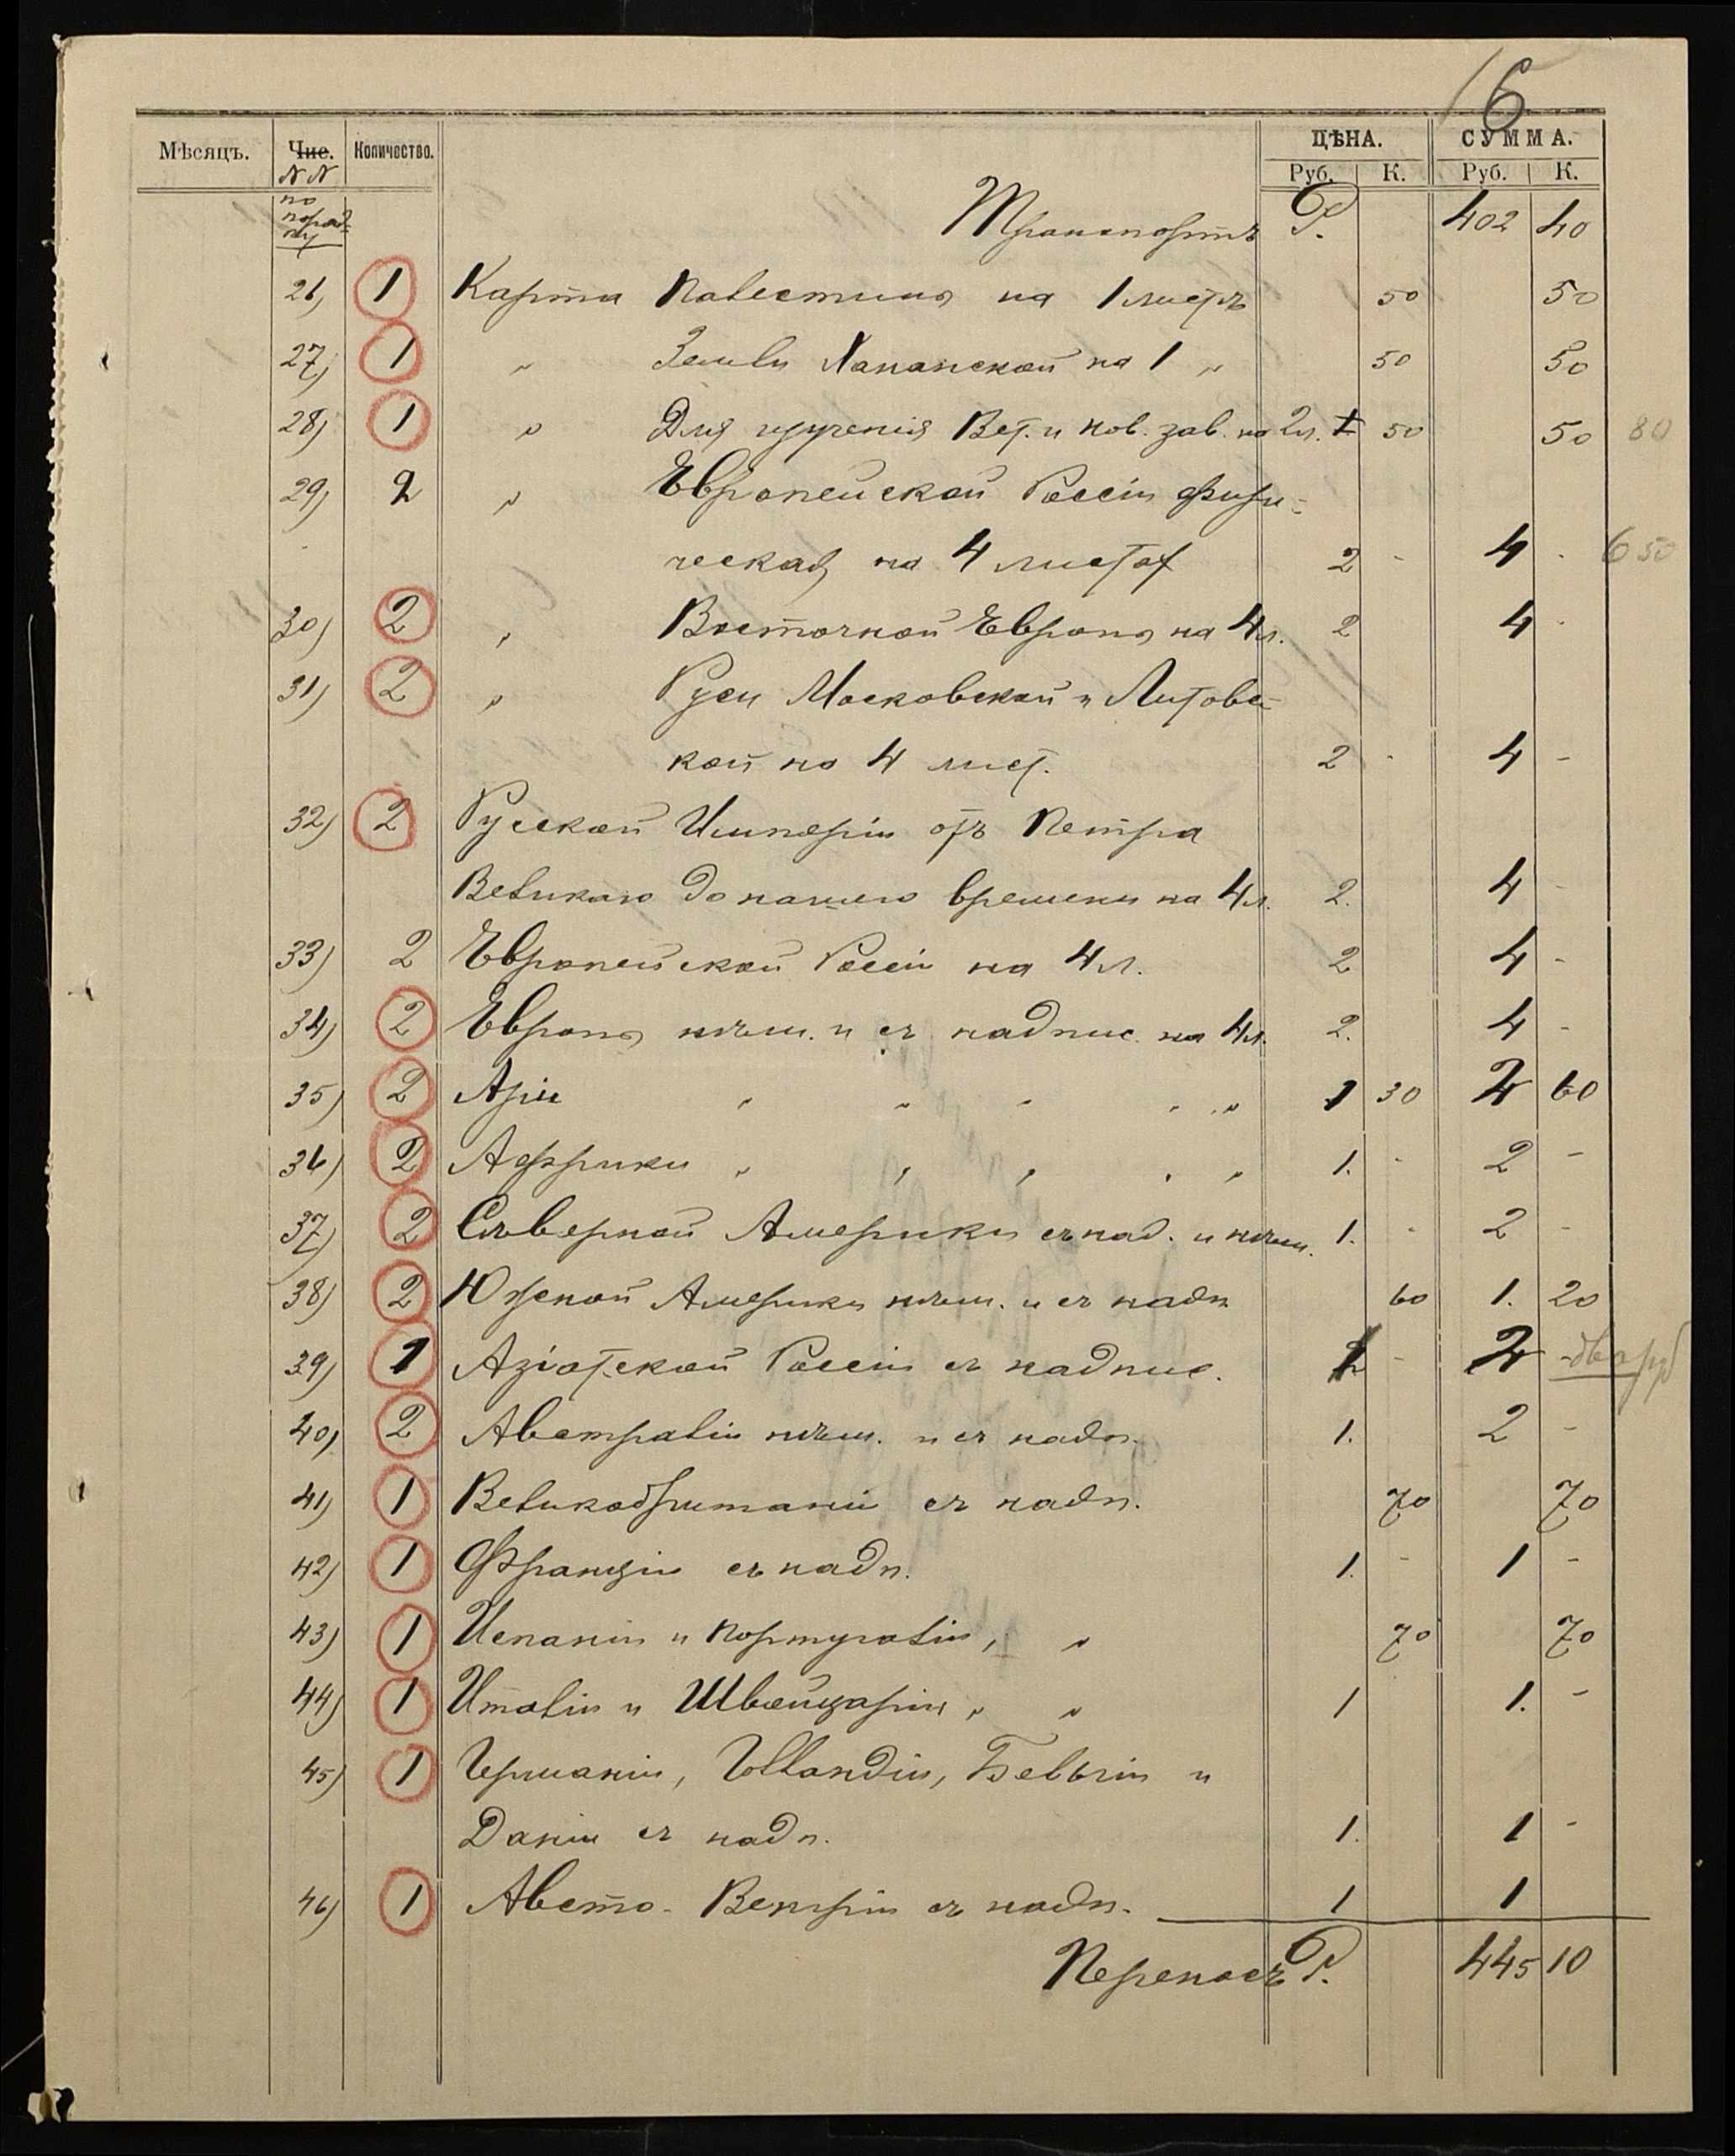 16
Мѣсяцъ. Чис. Количество. ЦѢНА. СУММА.
Руб. К. Руб. К.
NN
по
поряд-
ку
Транспортъ Р. 402 40
26) 1 Карта Палестины на 1 листѣ 50 50
27) 1 " Земли Ханаанской на 1 " 50 50
28) 1 " Для изученія Вет. и нов. зав. на 2 л. 1 50 50 80
29) 2 " Европейской Россіи физи-
ческая на 4 листах 2 - 4 - 6 50
30) 2 " Восточной Европы на 4 л. 2 4 -
31) 2 " Руси Московской и Литовс-
кой на 4 лист. 2 - 4 -
32) 2 Русской Имперіи отъ Петра
Великаго до нашего времени на 4 л. 2. 4 -
33) 2 Европейской Россіи на 4 л. 2 4 -
34) 2 Европы нѣм. и съ надпис. на 4 л. 2. 4 -
35) 2 Азіи " " " " " 1 30 2 60
36) 2 Аффрики " " " " " 1. - 2 -
37) 2 Сѣверной Америки съ над. и нѣм. 1. - 2 -
38) 2 Южной Америки нѣм. и съ надп 60 1. 20
39) 1 Азіатской Россіи съ надпис. 2 - 2 - два руб
40) 2 Австраліи нѣм. и съ надп. 1. 2 -
41) 1 Великобританіи съ надп. 70 70
42) 1 Франціи съ надп. 1. - 1 -
43) 1 Испаніи и Португаліи, " 70 70
44) 1 Италіи и Швейцаріи " " 1 1. -
45) 1 Германіи, Голландіи, Бельгіи и
Даніи съ надп. 1. 1 -
46) 1 Австро-Венгріи съ надп. 1 1
Переносъ Р. 445 10